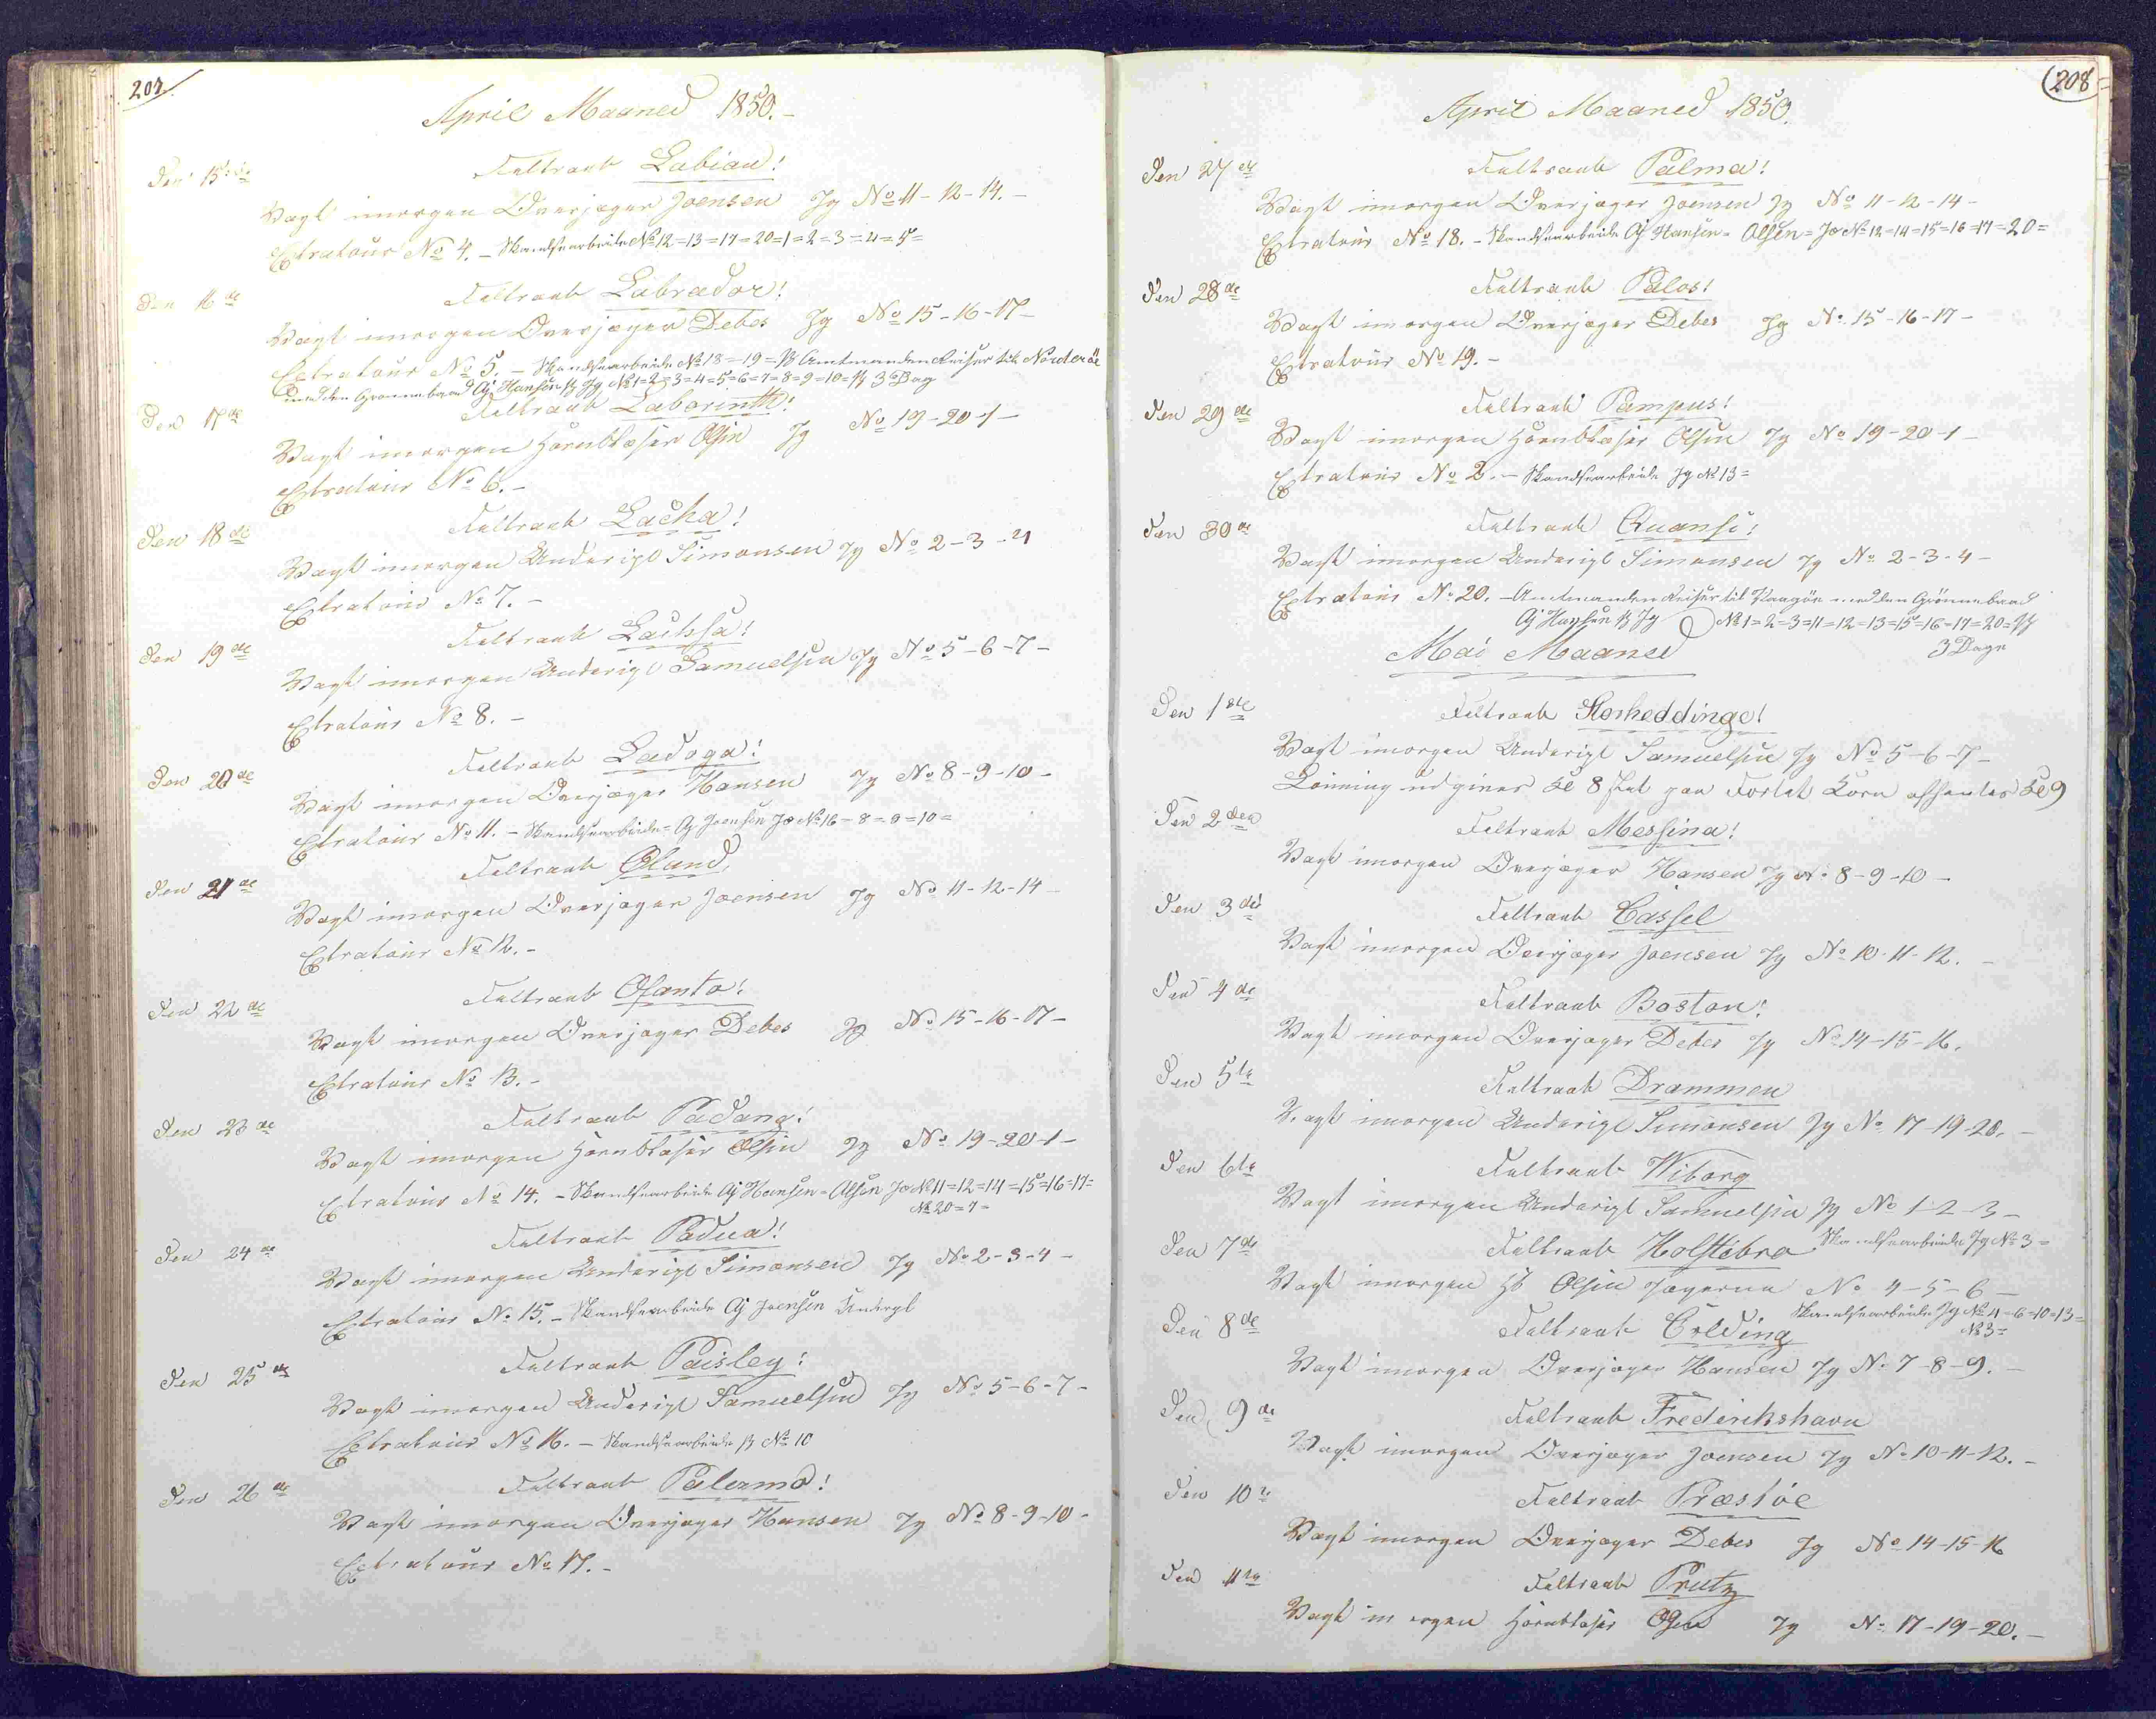 207
April Maaned 1850.-
Den 15de
Feltraab Labiau!
Vagt imorgen Overjæger Joensen Jg No 11-12-14.-
Extratour No 4. - Skandsearbeide No 12=13=17=20=1=2=3=4=5=
Den 16de
Feltraab Labrador!
Vagt imorgen Overjæger Debes Jg No 15-16-17-
Extratour No 5. - Skandsearbeide No 18=19= Amtmanden Reiser til Norderöe
med den Grønnebaad Oj Hansen Jg No 1=2=3=4=5=6=7=8=9=10= 3 Dag
Den 17de
Feltraab Laborinth!
Vagt imorgen Hornblæser Olsen Jg No 19-20-1-
Extratour No 6.-
Den 18de
Feltraab Lacha!
Vagt imorgen Underigl Simonsen Jg No 2-3-4
Extratour No 7.-
Den 19de
Feltraab Lachsa!
Vagt imorgen Underigl Samuelsen Jg No 5-6-7-
Extratour No 8.-
Den 20de
Feltraab Ladoga!
Vagt imorgen Overjæger Hansen Jg No 8-9-10-
Extratour No 11. - Skandsearbeide= Oj Joensen Jæ No 16-8=9=10=
Den 21de
Feltraab Øland
Vagt imorgen Overjæger Joensen Jg No 11-12-14-
Extratour No 12.-
Den 22de
Feltraab Ofanto!
Vagt imorgen Overjæger Debes Jg No 15-16-17-
Extratour No 13.-
Den 23de
Feltraab Padang!
Vagt imorgen Hornblæser Olsen Jg No 19-20-1-
Extratour No 14. - Skandsearbeide Oj Hansen= Olsen Jæ No 11=12=14=15=16=17=
No 20=7=
Den 24de
Feltraab Padua!
Vagt imorgen Underigl Simonsen Jg No 2-3-4-
Extratour No 15. - Skandsearbeide Oj Joensen Undergl
Den 25de
Feltraab Paisley!
Vagt imorgen Underigl Samuelsen Jg No 5-6-7-
Extratour No 16. - Skandsearbeide No 10
Den 26de
Feltraab Palermo!
Vagt imorgen Overjæger Hansen Jg No 8-9-10-
Extratour No 17.-
208
April Maaned 1850.
Den 27de
Feltraab Palma!
Vagt imorgen Overjæger Joensen Jg No 11-12-14-
Extratour No 18. - Skandsearbeide Oj Hansen= Olsen= Jæ No 12=14=15=16=17=20=
Den 28de
Feltraab Palos!
Vagt imorgen Overjæger Debes Jg No 15-16-17-
Extratour No 19.-
Den 29de
Feltraab Pampus!
Vagt imorgen Hornblæser Olsen Jg No 19-20-1-
Extratour No 2. - Skandsearbeide Jg No 13=
Den 30de
Feltraab Quansi!
Vagt imorgen Underigl Simonsen Jg No 2-3-4-
Extratour No 20. - Amtmanden Reiser til Vaagöe med den Grønnebaad
Oj Hansen Jg No 1=2=3=11=12=13=15=16=17=20=
3 Dage
Mai Maaned
Den 1ste
Feltraab Storheddinge!
Vagt imorgen Underigl Samuelsen Jg No 5-6-7-
Lönning udgives Kl 8 paa Fortet Korn afhentes Kl 9
Den 2den
Feltraab Messina!
Vagt imorgen Overjæger Hansen Jg No 8-9-10-
Den 3die
Feltraab Cassel
Vagt imorgen Overjæger Joensen Jg No 10-11-12.-
Den 4de
Feltraab Boston!
Vagt imorgen Overjæger Debes Jg No 14-15-16.
Den 5te
Feltraab Drammen
Vagt imorgen Underigl Simonsen Jg No 17-19-20.-
Den 6te
Feltraab Wiborg
Vagt imorgen Underigl Samuelsen Jg No 1-2-3-
Den 7de
Feltraab Holstebro Skandsearbeide Jg No 3=
Vagt imorgen Hb Olsen Jægerne No 4-5-6-
Den 8de
Feltraab Colding Skandsearbeide Jg No 4=6=10=13=
No 3=
Vagt imorgen Overjæger Hansen Jg No 7-8-9.-
Den 9de
Feltraab Frederikshavn
Vagt imorgen Overjæger Joensen Jg No 10-11-12.-
Den 10de
Feltraab Præstöe
Vagt imorgen Overjæger Debes Jg No 14-15-16
Den 11te
Feltraab Prutz
Vagt imorgen Hornblæser Olsen Jg No 17-19-20.-